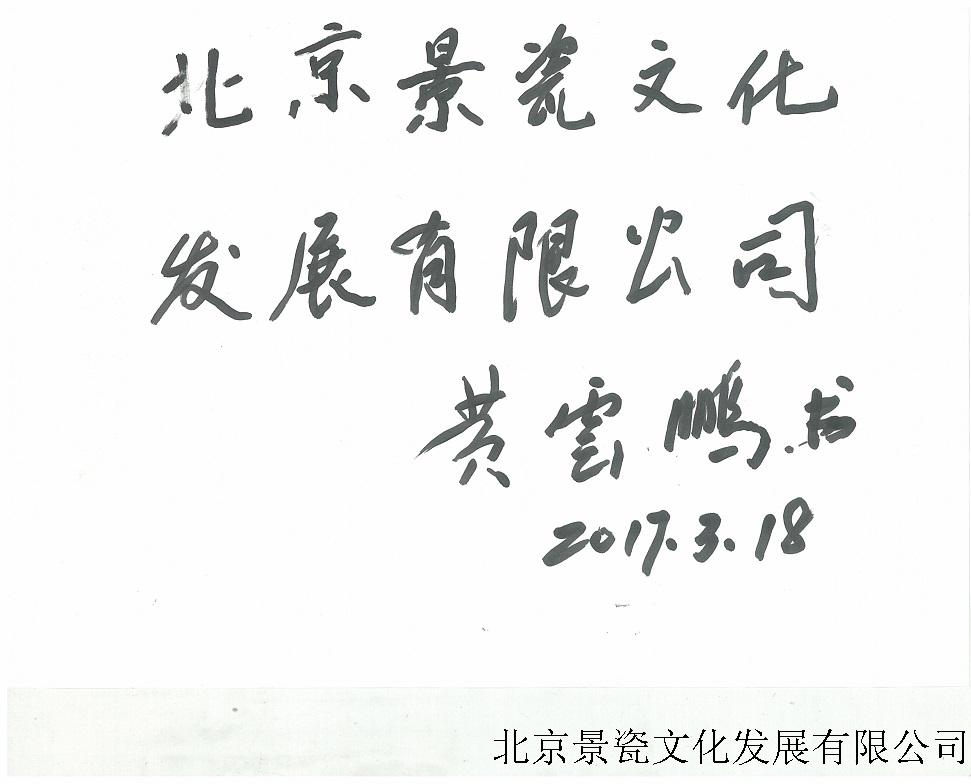 北京景瓷文化
发展有限公司
黄雲鹏书
2017.3.18
北京景瓷文化发展有限公司